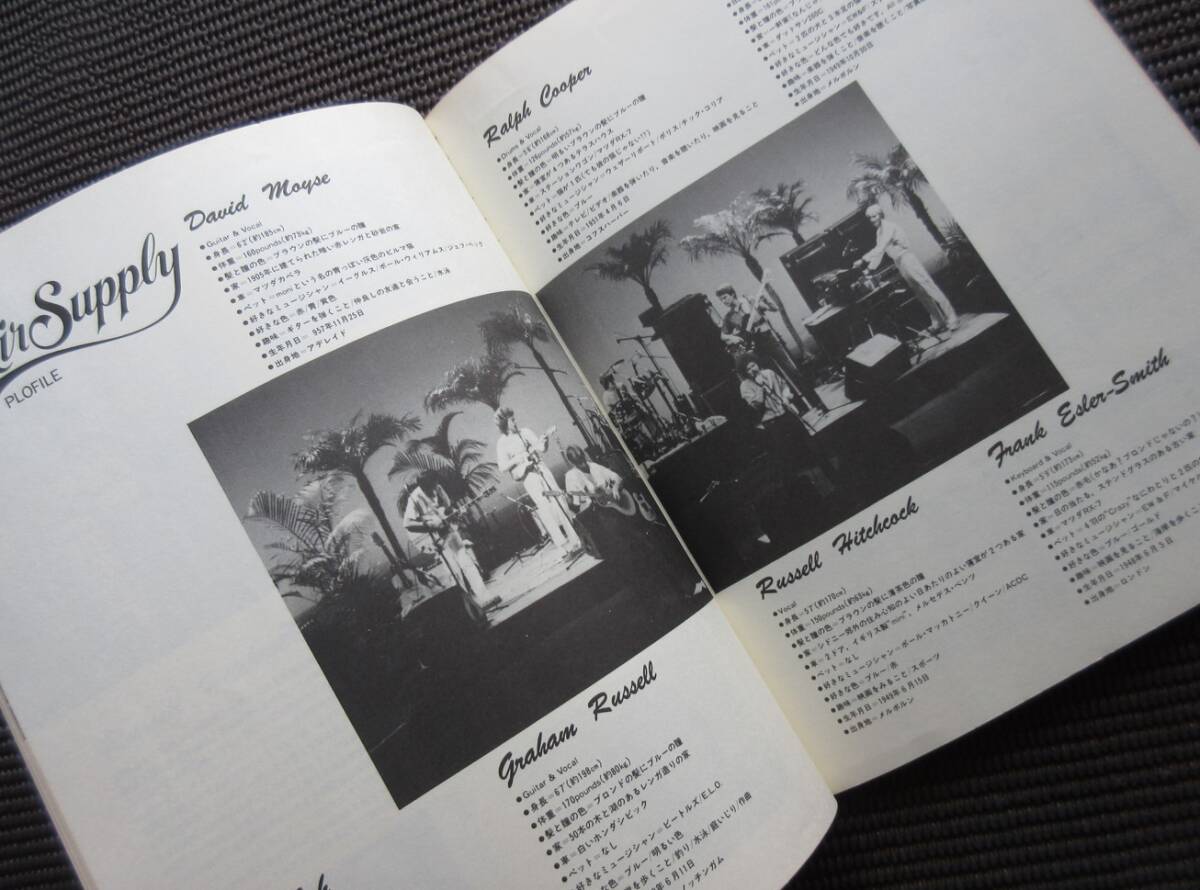 ir Supply
PLOFILE
David Moyse
●Guitar & Vocal
●身長=6'2"(約185cm)
●体重=160pounds(約73kg)
●髪と瞳の色=ブラウンの髪にブルーの瞳
●家=1905年に建てられた暗い赤レンガと砂岩の家
●車=マツダカペラ
●ペット=moniという名の青っぽい灰色のビルマ猫
●好きなミュージシャン=イーグルス/ポール・ウィリアムス/ジェフ・ベック
●好きな色=赤/青/黄色
●趣味=ギターを弾くこと/仲良しの友達と会うこと/水泳
●生年月日= 957年11月25日
●出身地=アデレイド
Graham Russell
●Guitar & Vocal
●身長=6'7"(約198cm)
●体重=170pounds(約80kg)
●髪と瞳の色=ブロンドの髪にブルーの瞳
●家=50本の木と湖のあるレンガ造りの家
●車=白いホンダシビック
●ペット=なし
●好きなミュージシャン=ビートルズ/E.L.O.
●好きな色=ブルー/明るい色
を歩くこと/釣り/水泳/庭いじり/作曲
年6月11日
ノッチンガム
Ralph Cooper
●Drums & Vocal
●身長=5'6"(約168cm)
●体重=126pounds(約57kg)
●髪と瞳の色=明るいブラウンの髪にブルーの瞳
●家=寝室が4つあるテラスハウス
●車=ステーションワゴン/マツダRX-7
●ペット=猫が1匹(でも僕の猫じゃない!?)
●好きなミュージシャン=ウェザーリポート/ポリス/チック・コリア
●好きな色=ブルー
●趣味=テレビ/ビデオ/楽器を弾いたり、音楽を聴いたり、映画を見ること
●生年月日=1951年4月6日
●出身地=コフスハーバー
●ペット=2匹の犬と3
●好きなミュージシャン=EW&F
●好きな色=どんな色でも好きです。All
●趣味=楽器を弾くこと/音楽を聴くこと
●生年月日=1949年10月30日
●出身地=メルボルン
Russell Hitchcock
●Vocal
●身長=5'7"(約170cm)
●体重=150pounds(約63kg)
●髪と瞳の色=ブラウンの髪に薄茶色の瞳
●家=シドニー郊外の住み心地のよい日あたりのよい寝室が2つある家
●車=2ドア、イギリス製"mini"、メルセデス・ベンツ
●ペット=なし
●好きなミュージシャン=ポール・マッカトニー/クイーン/ACDC
●好きな色=ブルー/赤
●趣味=映画をみること/スポーツ
●生年月日=1949年6月15日
●出身地=メルボルン
Frank Esler-Smith
●Keyboard & Vocal
●身長=5'8"(約173cm)
●体重=115pounds(約52kg)
●髪と瞳の色=赤毛(かなあ?ブロンドじゃないの?
●家=日の当たる、ステンドグラスのある古い家
●車=マツダRX-7
●ペット=4羽の"Crazy"なにわとりと2匹の
●好きなミュージシャン=EW&F/マイケ
●好きな色=ブルー/ゴールド
●趣味=映画を見ること/海岸を歩くこ
●生年月日=1948年6月5日
●出身地=ロンドン